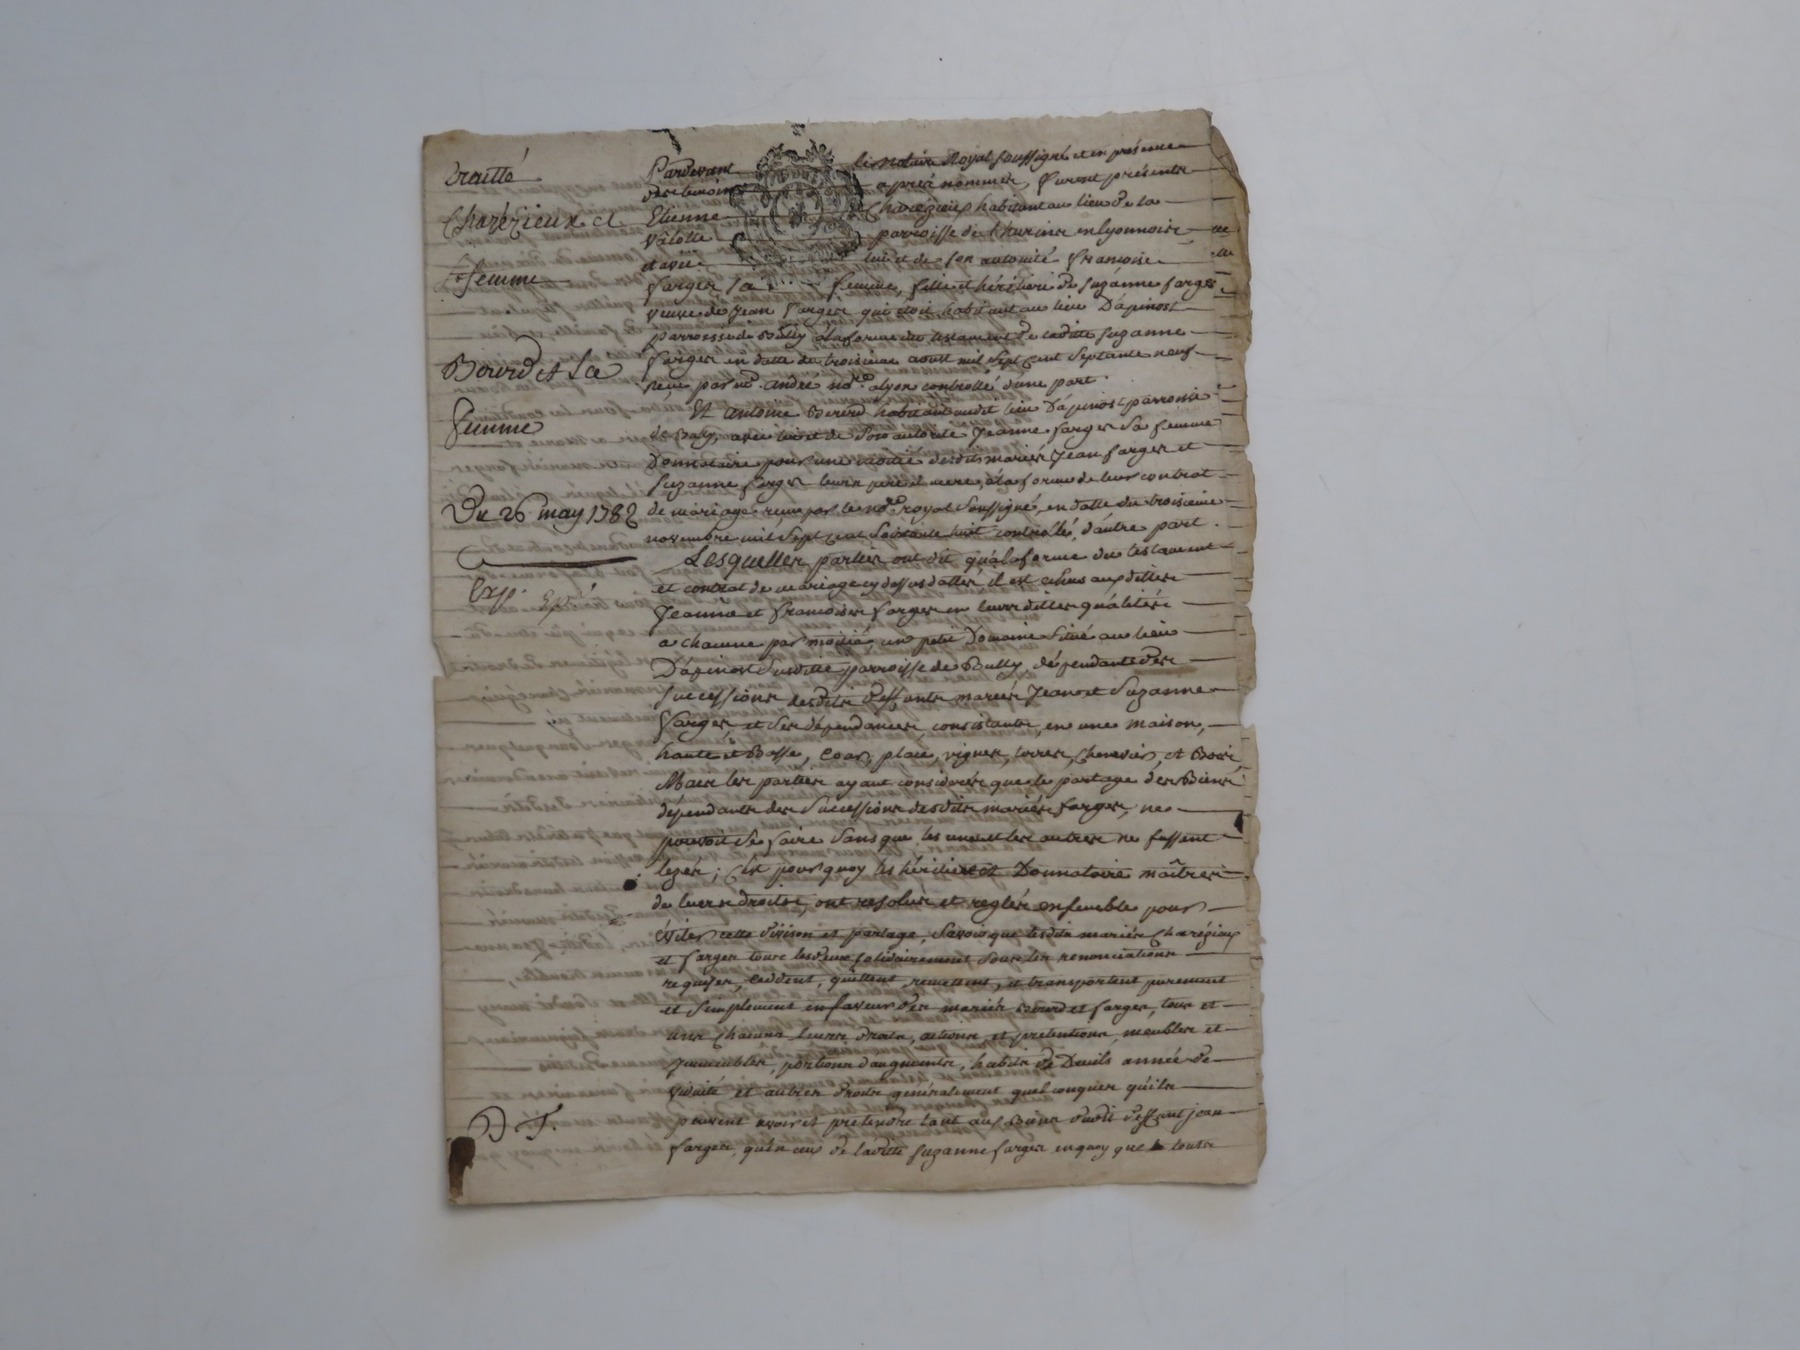 Traitté
Charézieux et
Sa femme
Bererd et Sa
femme
Du 26 may 1782
Exp.
Expé
D. F.
Pardevant le notaire Royal soussigné et en présence
des temoins après nommés, furent présents
Etienne Charezieux habitant au lieu de la
Valotte parroisse de Thurins en lyonnois
et avec lui et de son autorité françoise
farges sa femme, fille et héritière de suzanne farges
veuve de Jean farges qui étoit habitant au lieu D'apinost
parroisse de Bully a la forme du testament de laditte suzanne
farges en datte du troisieme aoust mil sept cent septante neuf
reçu par me. andré nore. a lyon controllé d'une part.
Et antoine Bererd habitant audit lieu D'apinost parroisse
de Bully, avec lui et de son autorité Jeanne farges sa femme
Donnataire pour une moitié desdits mariés Jean farges et
Suzanne farges leurs pere et mere, a la forme de leur contrat
de mariage reçu par le nore. royal soussigné, en datte du troisieme
novembre mil sept cent soixante huit controllé, d'autre part.
Lesquelles parties ont dit qu'a la forme du testament
et contrat de mariage cy dessus dattés, il est echus auxdittes
Jeanne et françoise farges en leurs dittes qualités
a chacune par moitié, un petit Domaine situé au lieu
D'apinost susditte parroisse de Bully, dépendants des
successions desdits deffunts mariés Jean et Suzanne
farges, et ses dépendances, consistants, en une maison,
haute et Basse, cour, place, vignes, terres, chenevier, et Bois,
Mais les parties ayant considerés que le partage des Biens
dépendants des successions desdits mariés farges, ne
pouvoit se faire sans que les unes et les autres ne fussent
lezés; C'est pourquoy les héritiere et Donnatoire maîtres
de leurs droits, ont resolus et reglés ensemble pour
éviter cette division et partage, savoir que lesdits mariés Charézieux
et farges tous les deux solidairement sous les renonciations
requises, ceddent, quittent, remettent, et transportent purement
et simplement en faveur des mariés Bererd et farges, tous et
uns chacuns leurs droits, actions, et pretentions, meubles et
immeubles, portions d'augments, habits de Deuils année de
viduité et autres droits généralement quelconques qu'ils
peuvent avoir et pretendre tant aux Biens dudit deffunt jean
farges, qu'en ceux de laditte suzanne farges en quoy que le touts